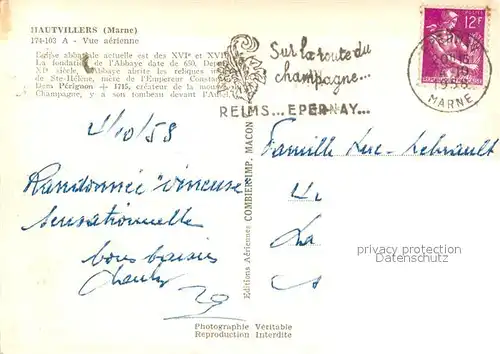 HAUTVILLERS (Marne)
174-102 A - Vue aérienne
L'église abbatiale actuelle est des XVIe et XVIIe
La fondation de l'Abbaye date de 650, Depuis
XIe siècle, l'Abbaye abrite les reliques
de Ste-Hélène, mère de l'Empereur Constantin
Dom Pérignon + 1715, créateur de la mousse
Champagne, y a son tombeau devant l'Autel.
Sur la route du
champagne...
REIMS... EPERNAY...
12F
1958
MARNE
4/10/58
Randonnée "vineuse"
sensationnelle
bons baisers
Charly
Famille Luc
La
Editions Aériennes COMBIER IMP. MACON
privacy protection
Datenschutz
Photographie Véritable
Reproduction Interdite